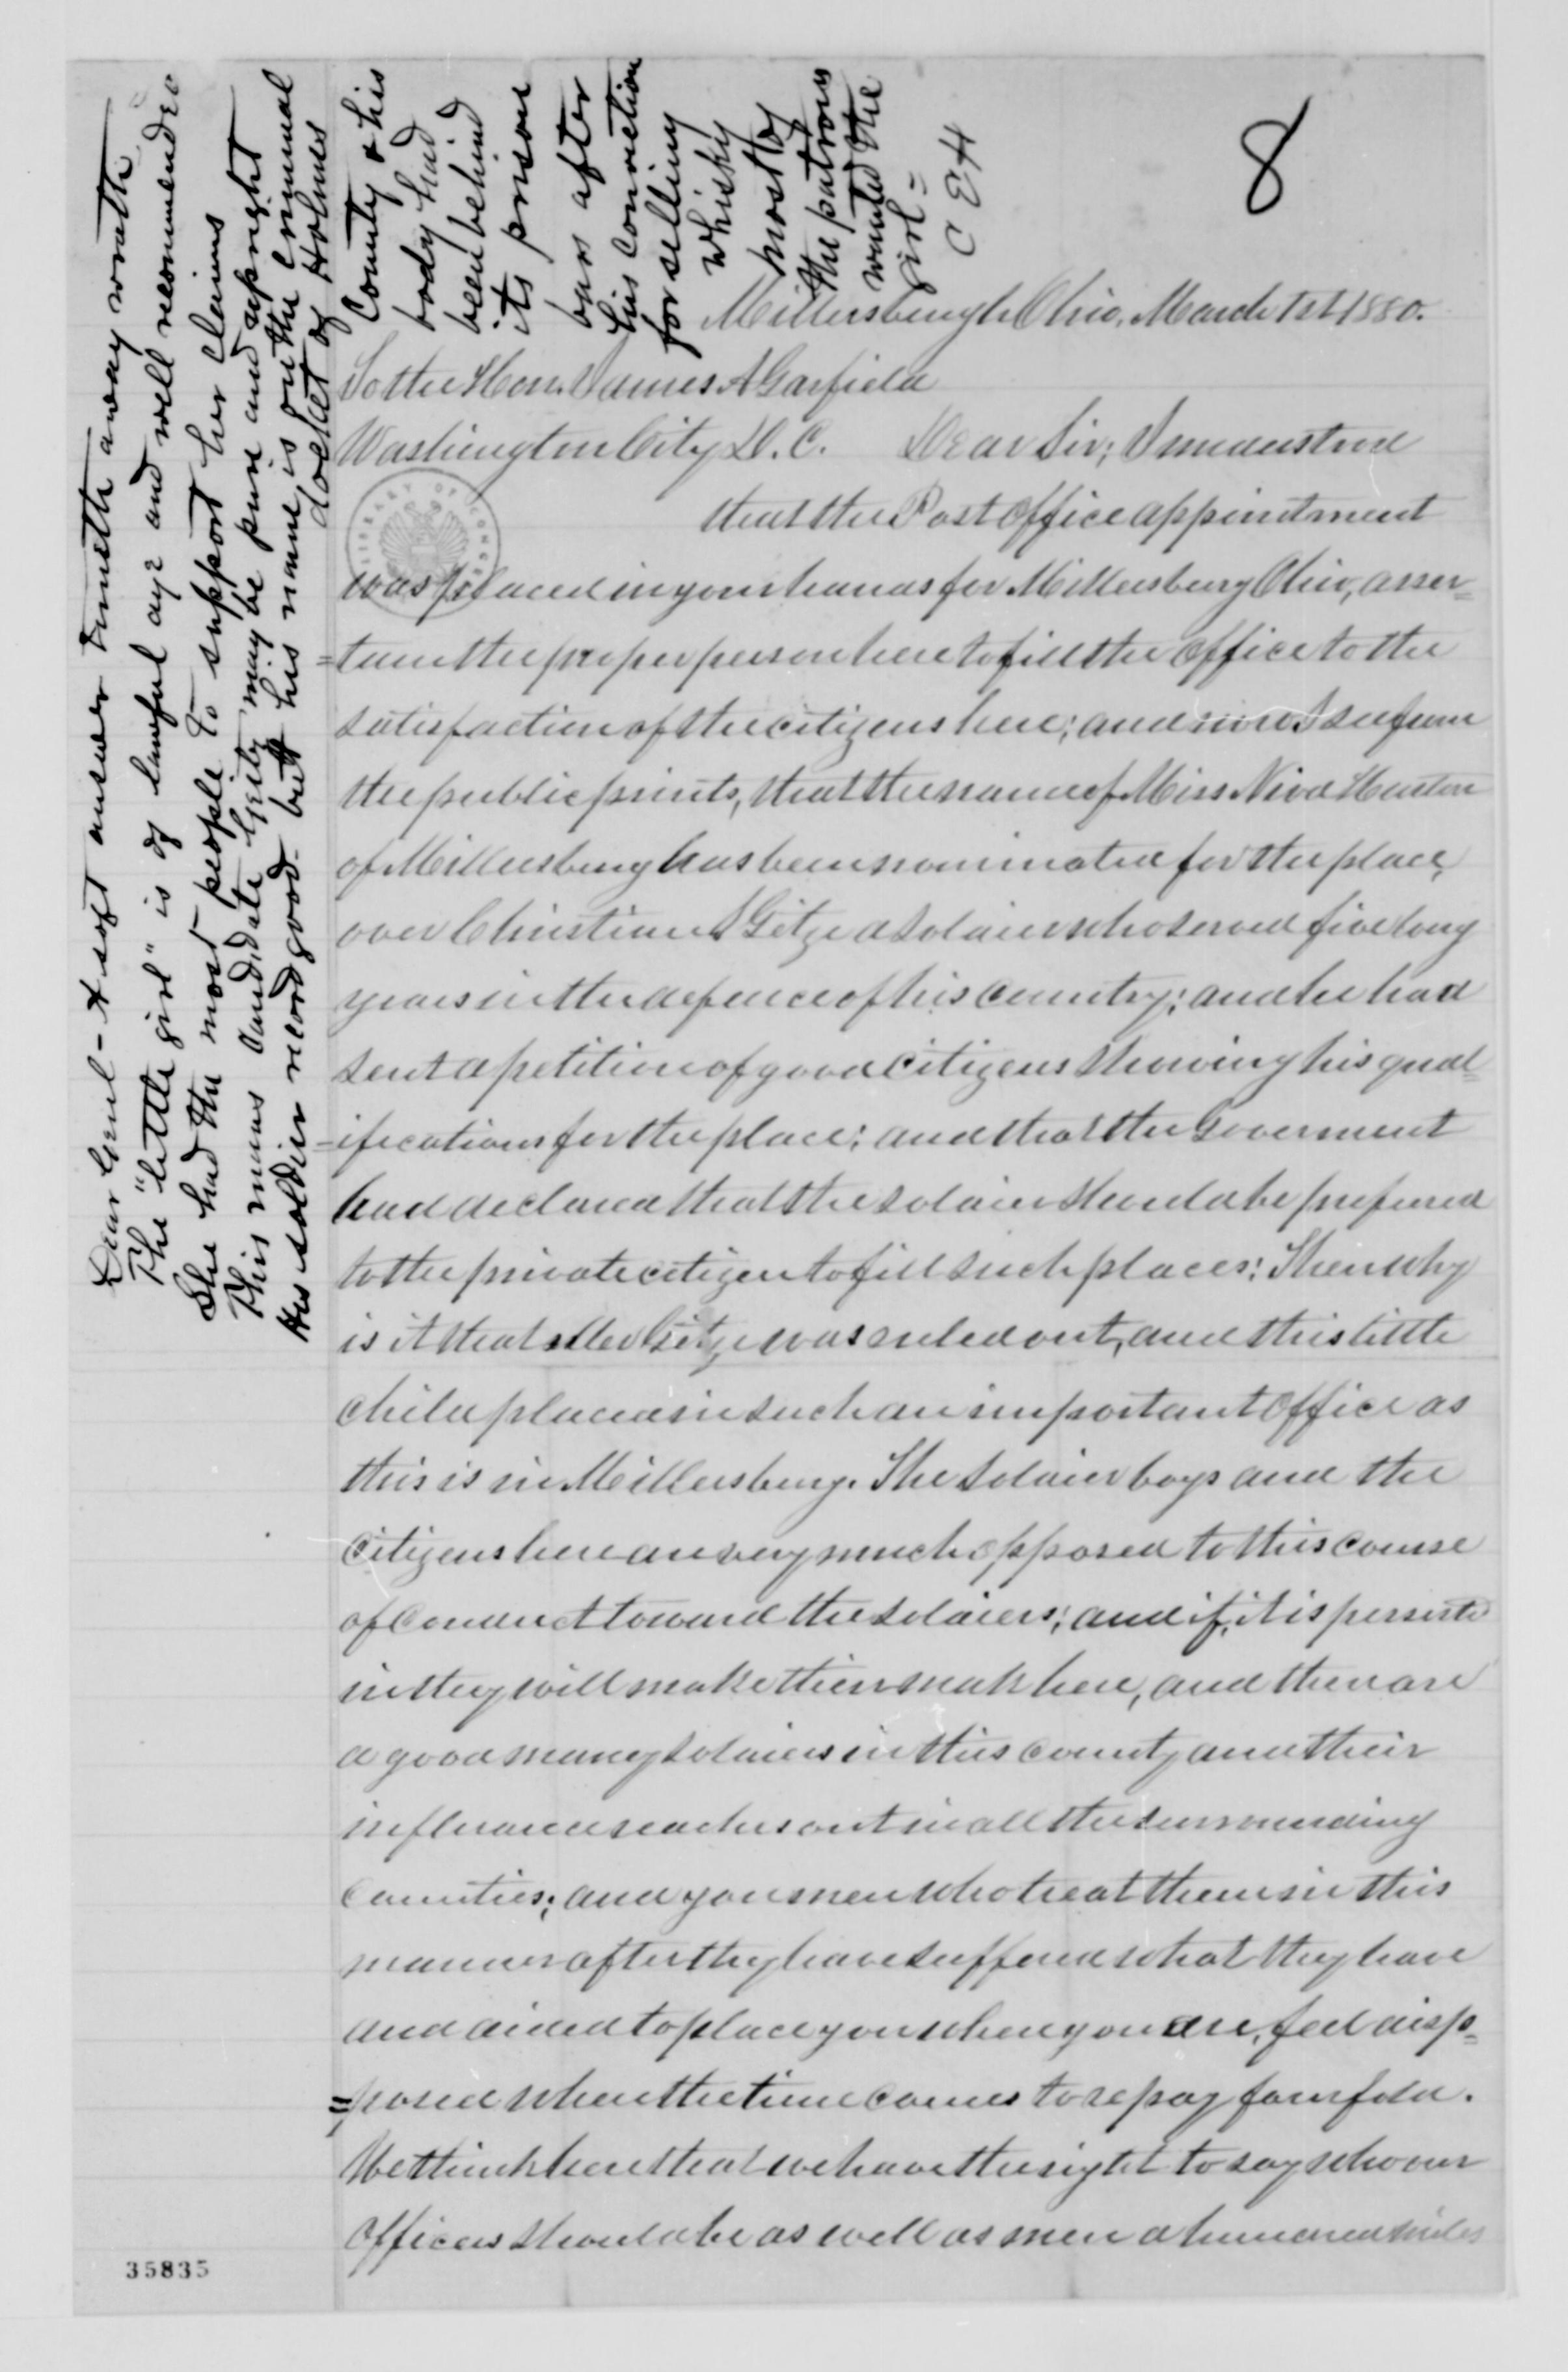 8
Millersburgh Ohio, March 1st 1880.
To the Hon. James A Garfield
Washington City D. C. Dear Sir; I understood
that the Post Office appointment
was placed in your hands for Millersburg Ohio, asser=
=tain the proper person here to fill the office to the
satisfaction of the citizens here; and now I see from
the public prints, that the name of Miss Niva
of Millersburg has been nominated for the place,
over Christian Gitze a soldier who served five long
years in the defence of his country; and he had
sent a petition of good citizens showing his qual=
=ifications for the place; and that the Goverment
had declared that the soldier should be prefered
to the private citizen to fill such places; Then why
is it that Mr Gitze was ruled out, and this little
child placed in such an important office as
this is in Millersburg. The soldier boys and the
citizens here are very much opposed to this course
of conduct toward the soldiers; and if, it is persisted
in they will make their mark here, and there are
a good many soldiers in this county and their
influance reaches out in all the surrounding
counties; and you men who treat them in this
manner after they have suffered what they have
and aided to place you where you are, feel disp=
=posed when the time comes to repay fourfold.
We think here that we have the right to say who our
officers should be as well as men a hundred miles
Dear Genl - A soft answer turneth away wrath
The "little girl" is of lawful age and well recommended
She had the most people to support her claims
This mans candidate may be pure and upright
His soldier record good - but his name is on the criminal
docket of Holmes
County & his
body had
been behind
its prison
bars after
his conviction
for selling
whisky
most of
the patrons
wanted the
girl =
C E H
35835